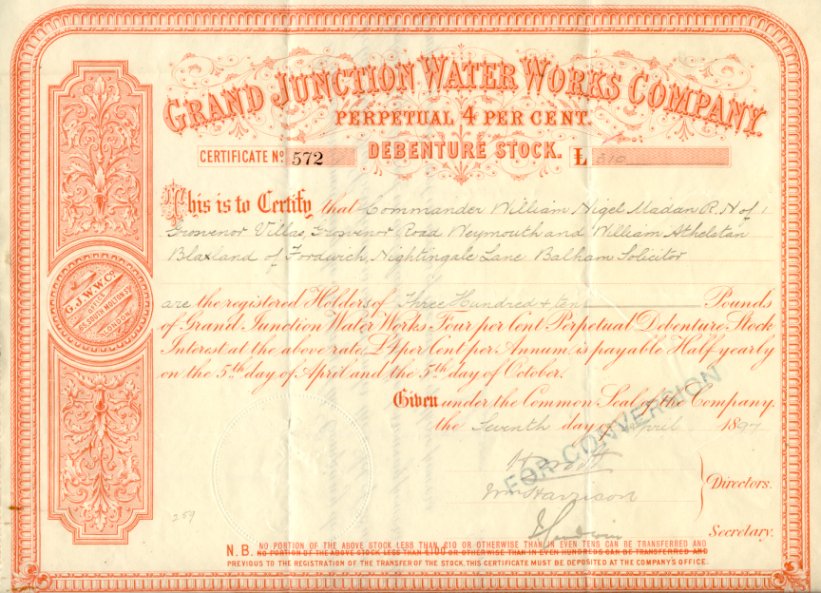 GRAND JUNCTION WATER WORKS COMPANY.
PERPETUAL 4 PER CENT.
CERTIFICATE No 572 DEBENTURE STOCK. £ 310
This is to Certify that Commander William Nigel Madan R.N of 1
Grosvenor Villas, Grosvenor Road Weymouth and William Athelstan
Blaxland of Fordwich, Nightingale Lane Balham Solicitor
are the registered Holders of Three Hundred & ten Pounds
of Grand Junction Water Works Four per Cent Perpetual Debenture Stock
Interest at the above rate, £4 per Cent per Annum, is payable Half yearly
on the 5th day of April and the 5th day of October.
Given under the Common Seal of the Company,
the Seventh day of April 1897
FOR CONVERSION
Wm Harrison
Directors.
Secretary.
259
G.J.W.W.Co.
OFFICE
65, SOUTH MOLTON ST
LONDON
NO PORTION OF THE ABOVE STOCK LESS THAN £10 OR OTHERWISE THAN IN EVEN TENS CAN BE TRANSFERRED AND
N.B. NO PORTION OF THE ABOVE STOCK LESS THAN £100 OR OTHERWISE THAN IN EVEN HUNDREDS CAN BE TRANSFERRED AND
PREVIOUS TO THE REGISTRATION OF THE TRANSFER OF THE STOCK, THIS CERTIFICATE MUST BE DEPOSITED AT THE COMPANY'S OFFICE.